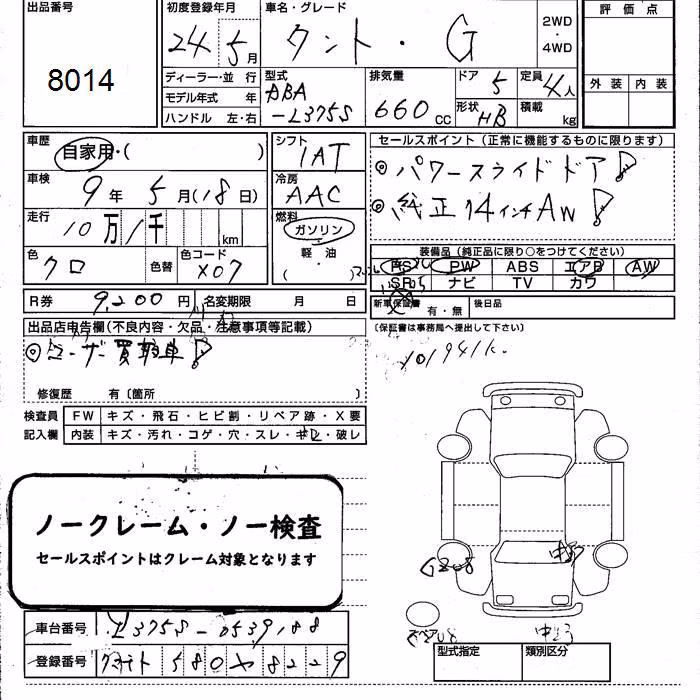 出品番号
8014
初度登録年月
24 5月
車名・グレード
タント・G
2WD
・
4WD
評価点
外装 内装
ディーラー・並行
モデル年式 年
ハンドル 左・右
型式
DBA
-L375S
排気量
660 CC
ドア 5
形状 HB
定員 4人
積載 kg
車歴
自家用・( )
車検
9年 5月(18日)
走行
10万1千 km
色
クロ
色替
色コード
X07
シフト
IAT
冷房
AAC
燃料
ガソリン
軽・油
( )
セールスポイント(正常に機能するものに限ります)
◎パワースライドドア!
◎純正14インチAW!
装備品(純正品に限り○をつけてください)
PS PW ABS エアB AW
SR ナビ TV カワ
R券 9,200円 名変期限 月 日
新車保証書 有・無 後日品
(保証書は事務局へ提出して下さい)
出品店申告欄(不良内容・欠品・注意事項等記載)
◎ユーザー買取車!
修復歴 有〔箇所 〕
検査員 FW キズ・飛石・ヒビ割・リペア跡・X要
記入欄 内装 キズ・汚れ・コゲ・穴・スレ・キレ・破レ
ノークレーム・ノー検査
セールスポイントはクレーム対象となります
車台番号 L375S-0539188
登録番号 580 8229
スペア
型式指定 類別区分